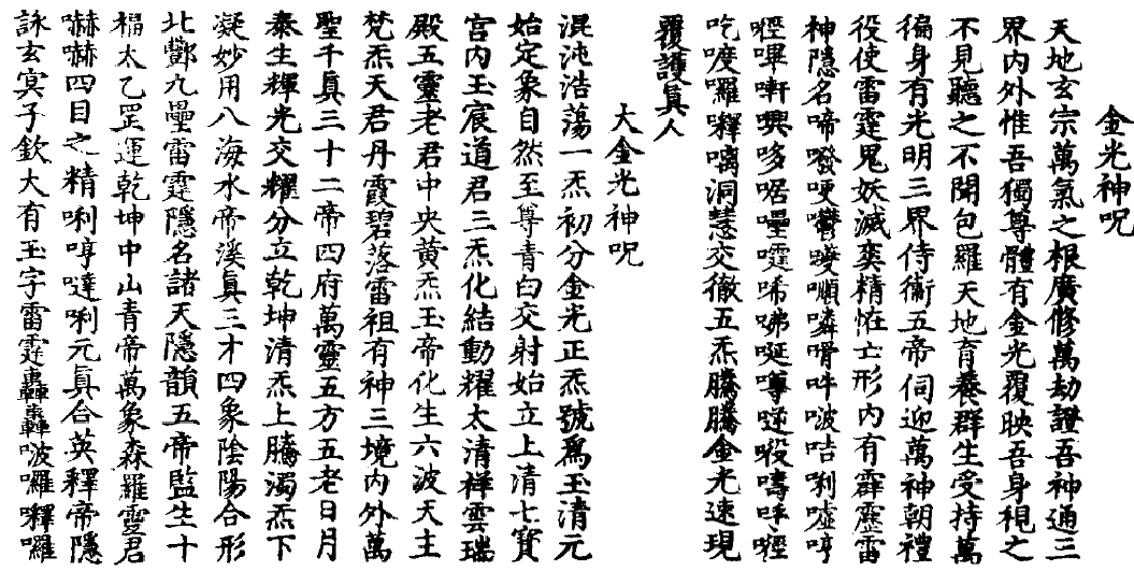 金光神呪
天地玄宗萬氣之根廣修萬劫證吾神通三
界内外惟吾獨尊體有金光覆映吾身視之
不見聽之不聞包羅天地育養群生受持萬
徧身有光明三界侍衞五帝伺迎萬神朝禮
役使雷霆鬼妖滅䘮精恠亡形内有霹靂雷
神隱名啼㗶哽嚬嚩嗍嘺㗕吽啵咭唎嘘哼
囉釋嚆洞慧交徹五炁騰騰金光速現
覆護眞人
大金光神呪
混沌浩蕩一炁初分金光正炁號爲玉清元
始定象自然至尊青白交射始立上清七寳
宫内玉宸道君三炁化結動耀太清祥雲瑞
殿五靈老君中央黄炁玉帝化生六波天主
梵炁天君丹霞碧落雷祖有神三境内外萬
聖千眞三十二帝四府萬靈五方五老日月
泰生輝光交耀分立乾坤清炁上騰濁炁下
凝妙用八海水帝溪眞三才四象陰陽合形
北酆九壘雷霆隱名諸天隱韻五帝監生十
福太乙罡運乾坤中山青帝萬象森羅靈君
嚇嚇四目之精唎哼噠唎元眞合英釋帝隱
詠玄冥子欽大有玉字雷霆轟轟啵囉釋囉